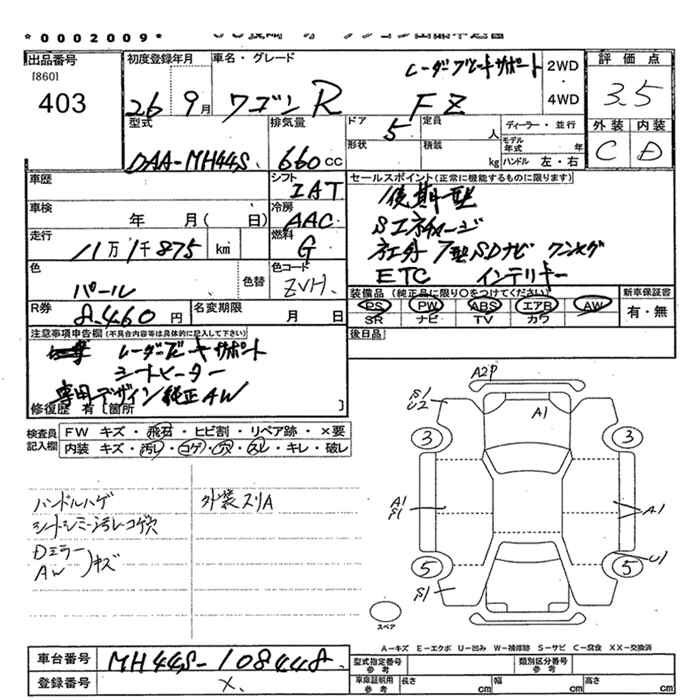 *0002009*
出品番号
[860]
403
初度登録年月
26 9月
車名・グレード
レーダーブレーキサポート
ワゴンR FZ
2WD
4WD
評価点
3.5
外装 内装
C D
型式
DAA-MH44S
排気量
660 CC
ドア
5
形状
定員
人
積載
kg
ディーラー・並行
モデル年式
年
ハンドル 左・右
車歴
シフト
IAT
車検
年 月( 日)
冷房
AAC
走行
11万1千875 km
燃料
G
色
パール
色替
色コード
ZVH
R券
8460円
名変期限
月 日
セールスポイント(正常に機能するものに限ります)
後期型
Sエネチャージ
社外7型SDナビ ワンセグ
ETC インテリキー
装備品(純正品に限り○をつけてください)
PS PW ABS エアB AW
SR ナビ TV カワ
新車保証書
有・無
後日品
注意事項申告欄(不具合内容等は具体的に記入して下さい)
レーダーブレーキサポート
シートヒーター
専用デザイン純正AW
修復歴 有〔箇所 〕
検査員記入欄
FW キズ・飛石・ヒビ割・リペア跡・×要
内装 キズ・汚レ・コゲ・穴・スレ・キレ・破レ
ハンドルハゲ
シートシミ汚レコゲ穴
Dミラー
AW キズ
外装スリA
A2P
S1
U2
A1
3 3
A1
S1
A1
U1
5 5
S1
スペア
A-キズ E-エクボ U-凹み W-補修跡 S-サビ C-腐食 XX-交換済
車台番号
MH44S-108448
登録番号
X
型式指定番号
参考
類別区分番号
参考
車庫証明用
参考
長さ cm
幅 cm
高さ cm